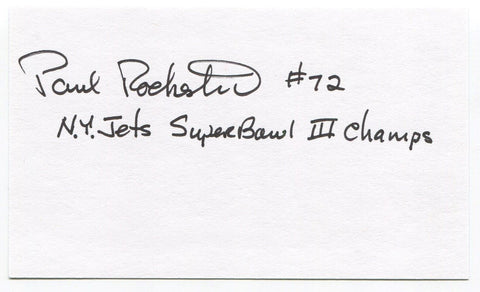 Paul Rochester #72
N.Y. Jets Super Bowl III Champs